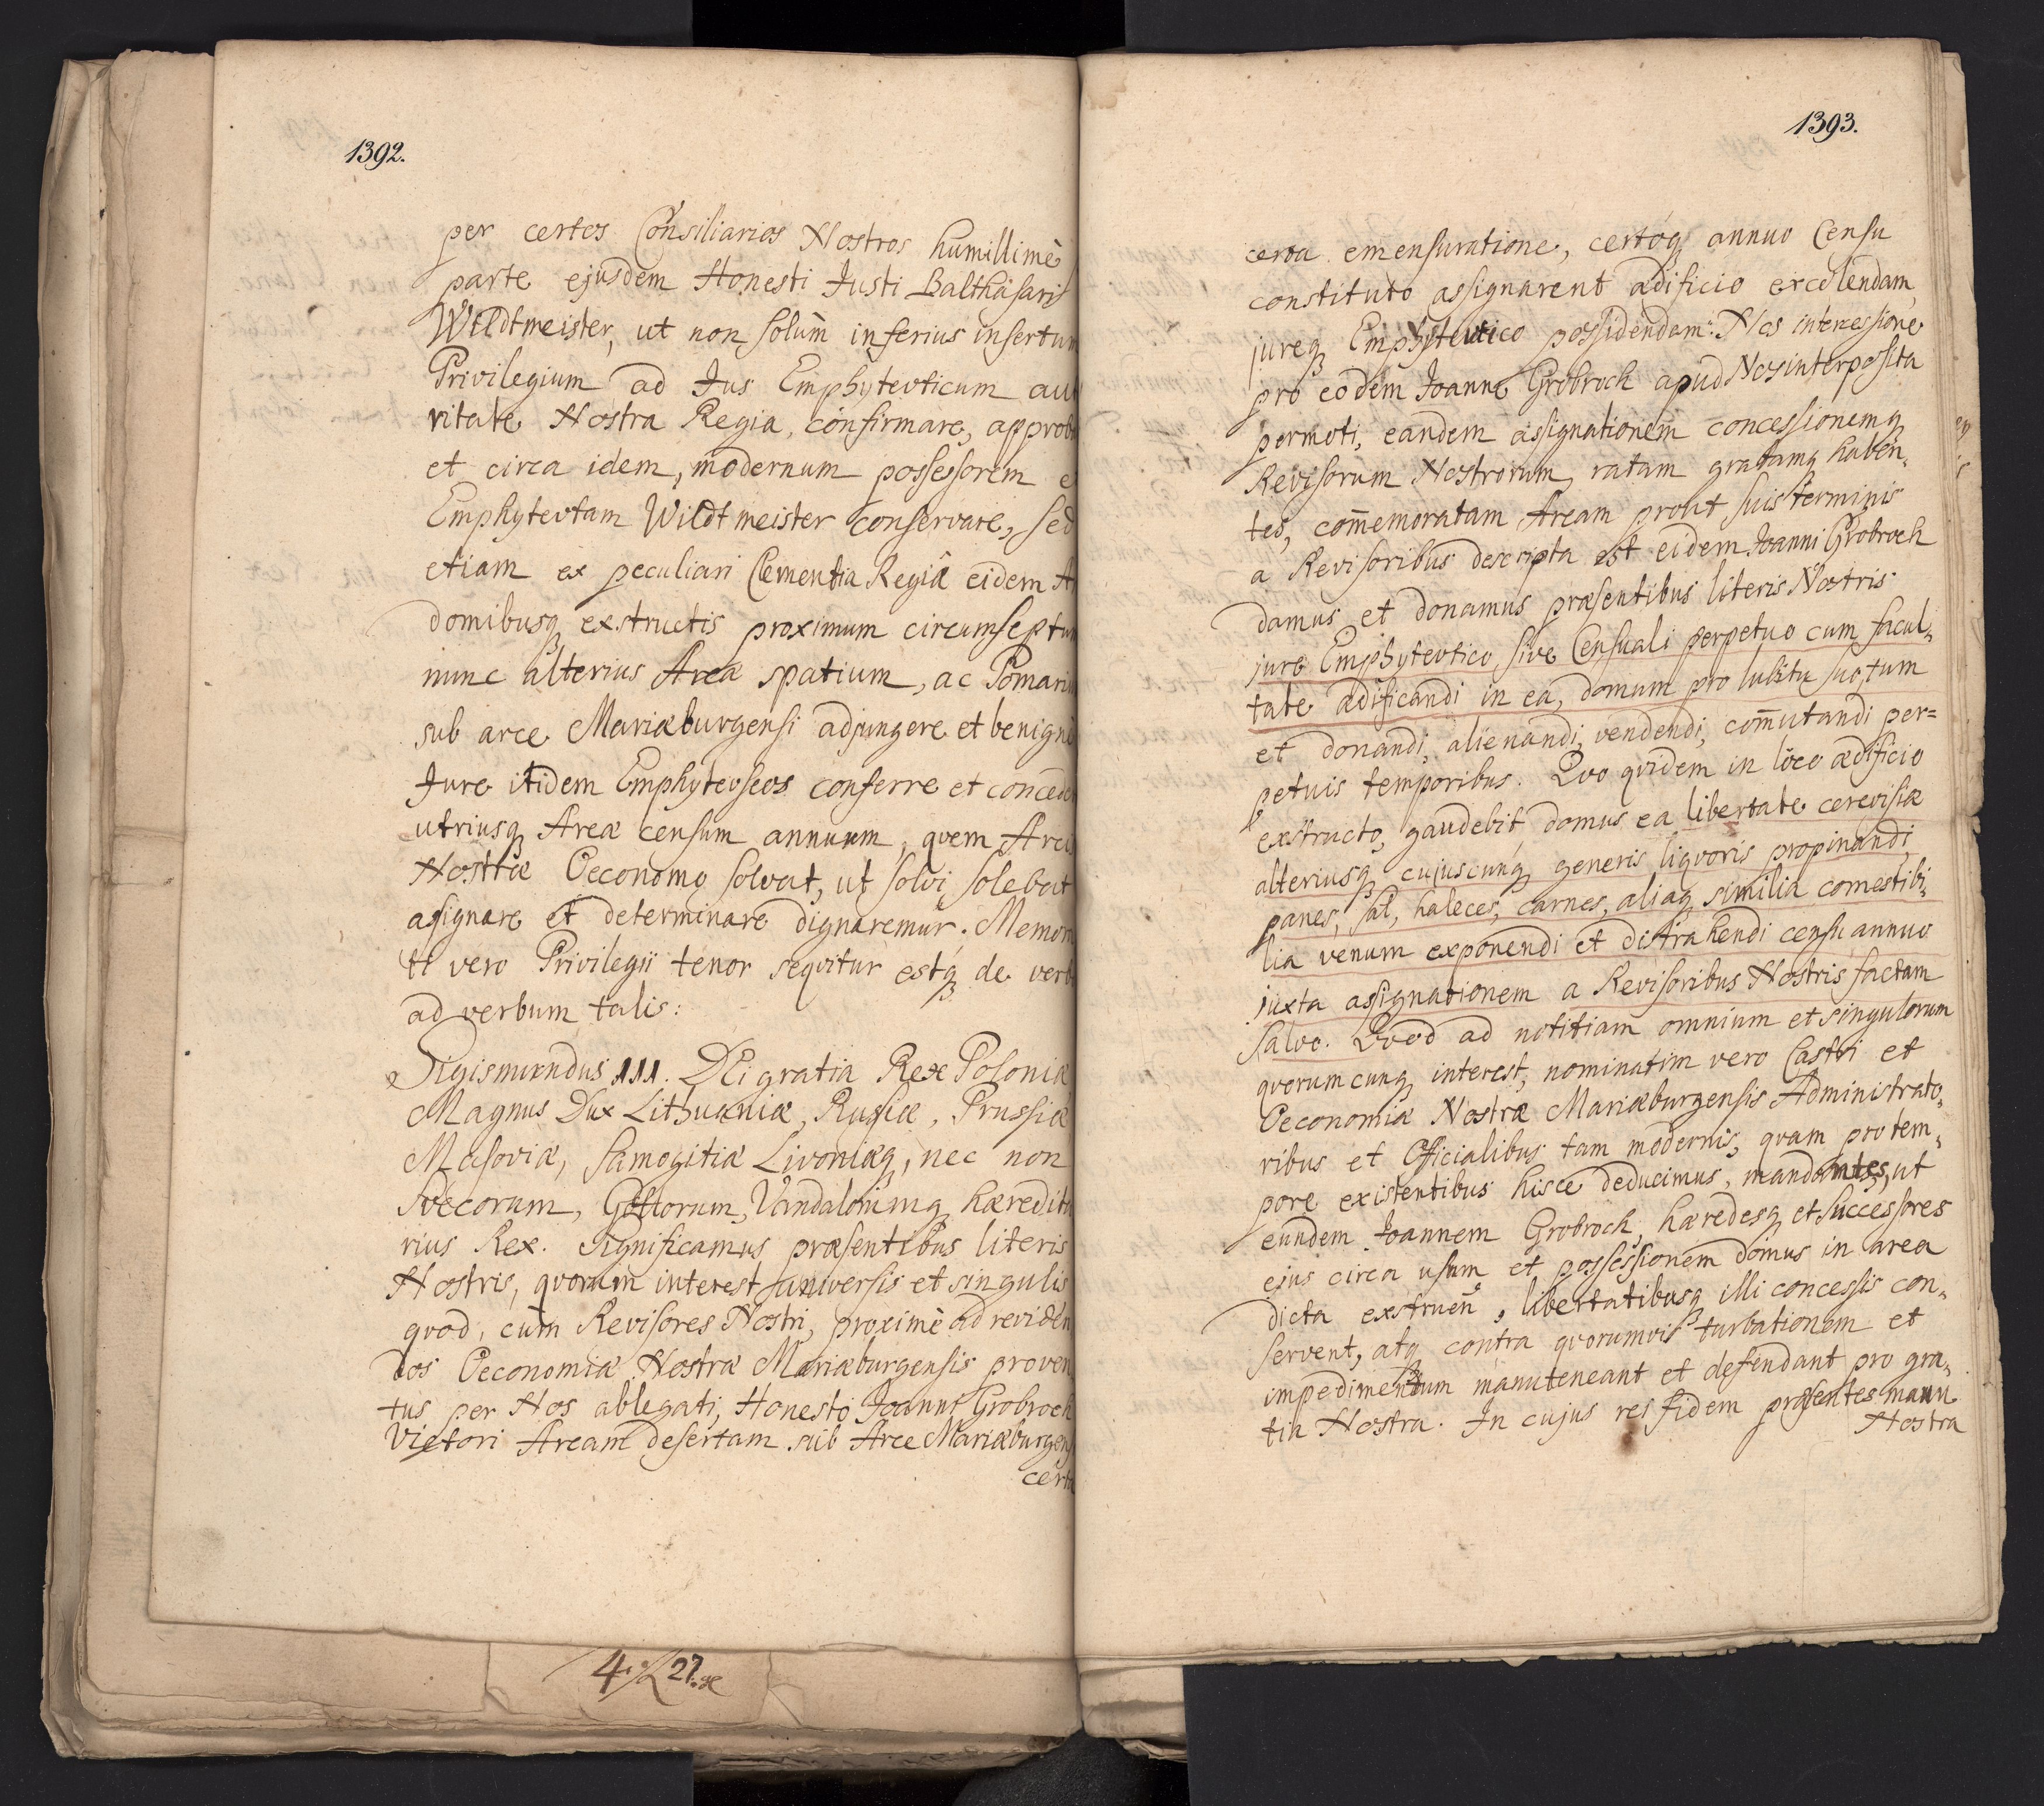 1392.
per certos Consiliarios Nostros humillimè
parte ejusdem Honesti Justi Balthasaris
Wildtmeister, ut non solùm inferius insertum
Privilegium ad Jus Emphytevticum au
ritate Nostra Regia, confirmare, approba
et circa idem, modernum possessorem e
Emphytevtam Wildtmeister conservare, sed
etiam ex peculiari Clementia Regiâ eidem A
domibusq₃ exstructis proximum circumseptum
nunc alterius Areæ spatium, ac Pomariu
sub arce Mariæburgensi adjungere et benigne
Jure itidem Emphytevseos conferre et concede
utriusq₃ Areæ censum annuum, qvem Arcis
Nostræ Oeconomo solvat, ut solvi solebat
assignare et determinare dignaremur. Memora
ti vero Privilegii tenor seqvitur estq₃ de verbo
ad verbum talis:
Sigismundus III. Dei gratia Rex Poloniæ
Magnus Dux Lithuaniæ, Russiæ, Prussiæ
Masoviæ, Samogitiæ Livoniæq₃, nec non
Svecorum, Gottorum, Vandalorumq₃ hæredita
rius Rex. Significamus præsentibus literis
Nostris, qvorum interest universis et singulis
qvod, cùm Revisores Nostri, proximè ad reviden
dos Oeconomiæ Nostræ Mariæburgensis proven
tus per Nos ablegati, Honesto Joanni Grobroch
Vietori Aream desertam sub Arce Mariæburgens
certa
4. 27.
1393.
certa emensuratione, certoq₃ annuo Censu
constituto assignarent ædificio excolendam,
jureq₃ Emphytevtico possidendam: Nos intercessione
pro eodem Joanne Grobroch apud Nos interposita
permoti, eandem assignationem concessionemq₃
Revisorum Nostrorum, ratam gratamq₃ haben„
tes, com̄emoratam Aream proút suis terminis
a Revisoribus descripta est eidem Joanni Grobroch
damus et donamus præsentibus literis Nostris
jure Emphytevtico, sive Censuali perpetuo cum facul„
tate ædificandi in ea, domum pro lubitu suo, tum
et donandi, alienandi, vendendi, com̄utandi per=
petuis temporibus. Qvo qvidem in loco ædificio
exstructo, gaudebit domus ea libertate cerevisiæ
alteriusq₃ cujuscunq₃ generis liqvoris propinandi,
panes, sal, haleces, carnes, aliaq₃ similia comestibi„
lia venum exponendi et distrahendi censu annuo
juxta assignationem a Revisoribus Nostris factam
salvo. Qvod ad notitiam omnium et singulorum
qvorumcunq₃ interest, nominatim vero Castri et
Oeconomiæ Nostræ Mariæburgensis Administrato„
ribus et Officialibus tam modernis, qvam pro tem„
pore existentibus hisce deducimus, mandantes, ut
eundem Joannem Grobroch, hæredesq₃ et Successores
ejus circa usum et possessionem domus in area
dicta exstruen̄, libertatibusq₃ illi concessis con„
servent, atq₃ contra qvorumvis turbationem et
impedimentum manuteneant et defendant pro gra„
tia Nostra. In cujus rei fidem præsentes manu
Nostra